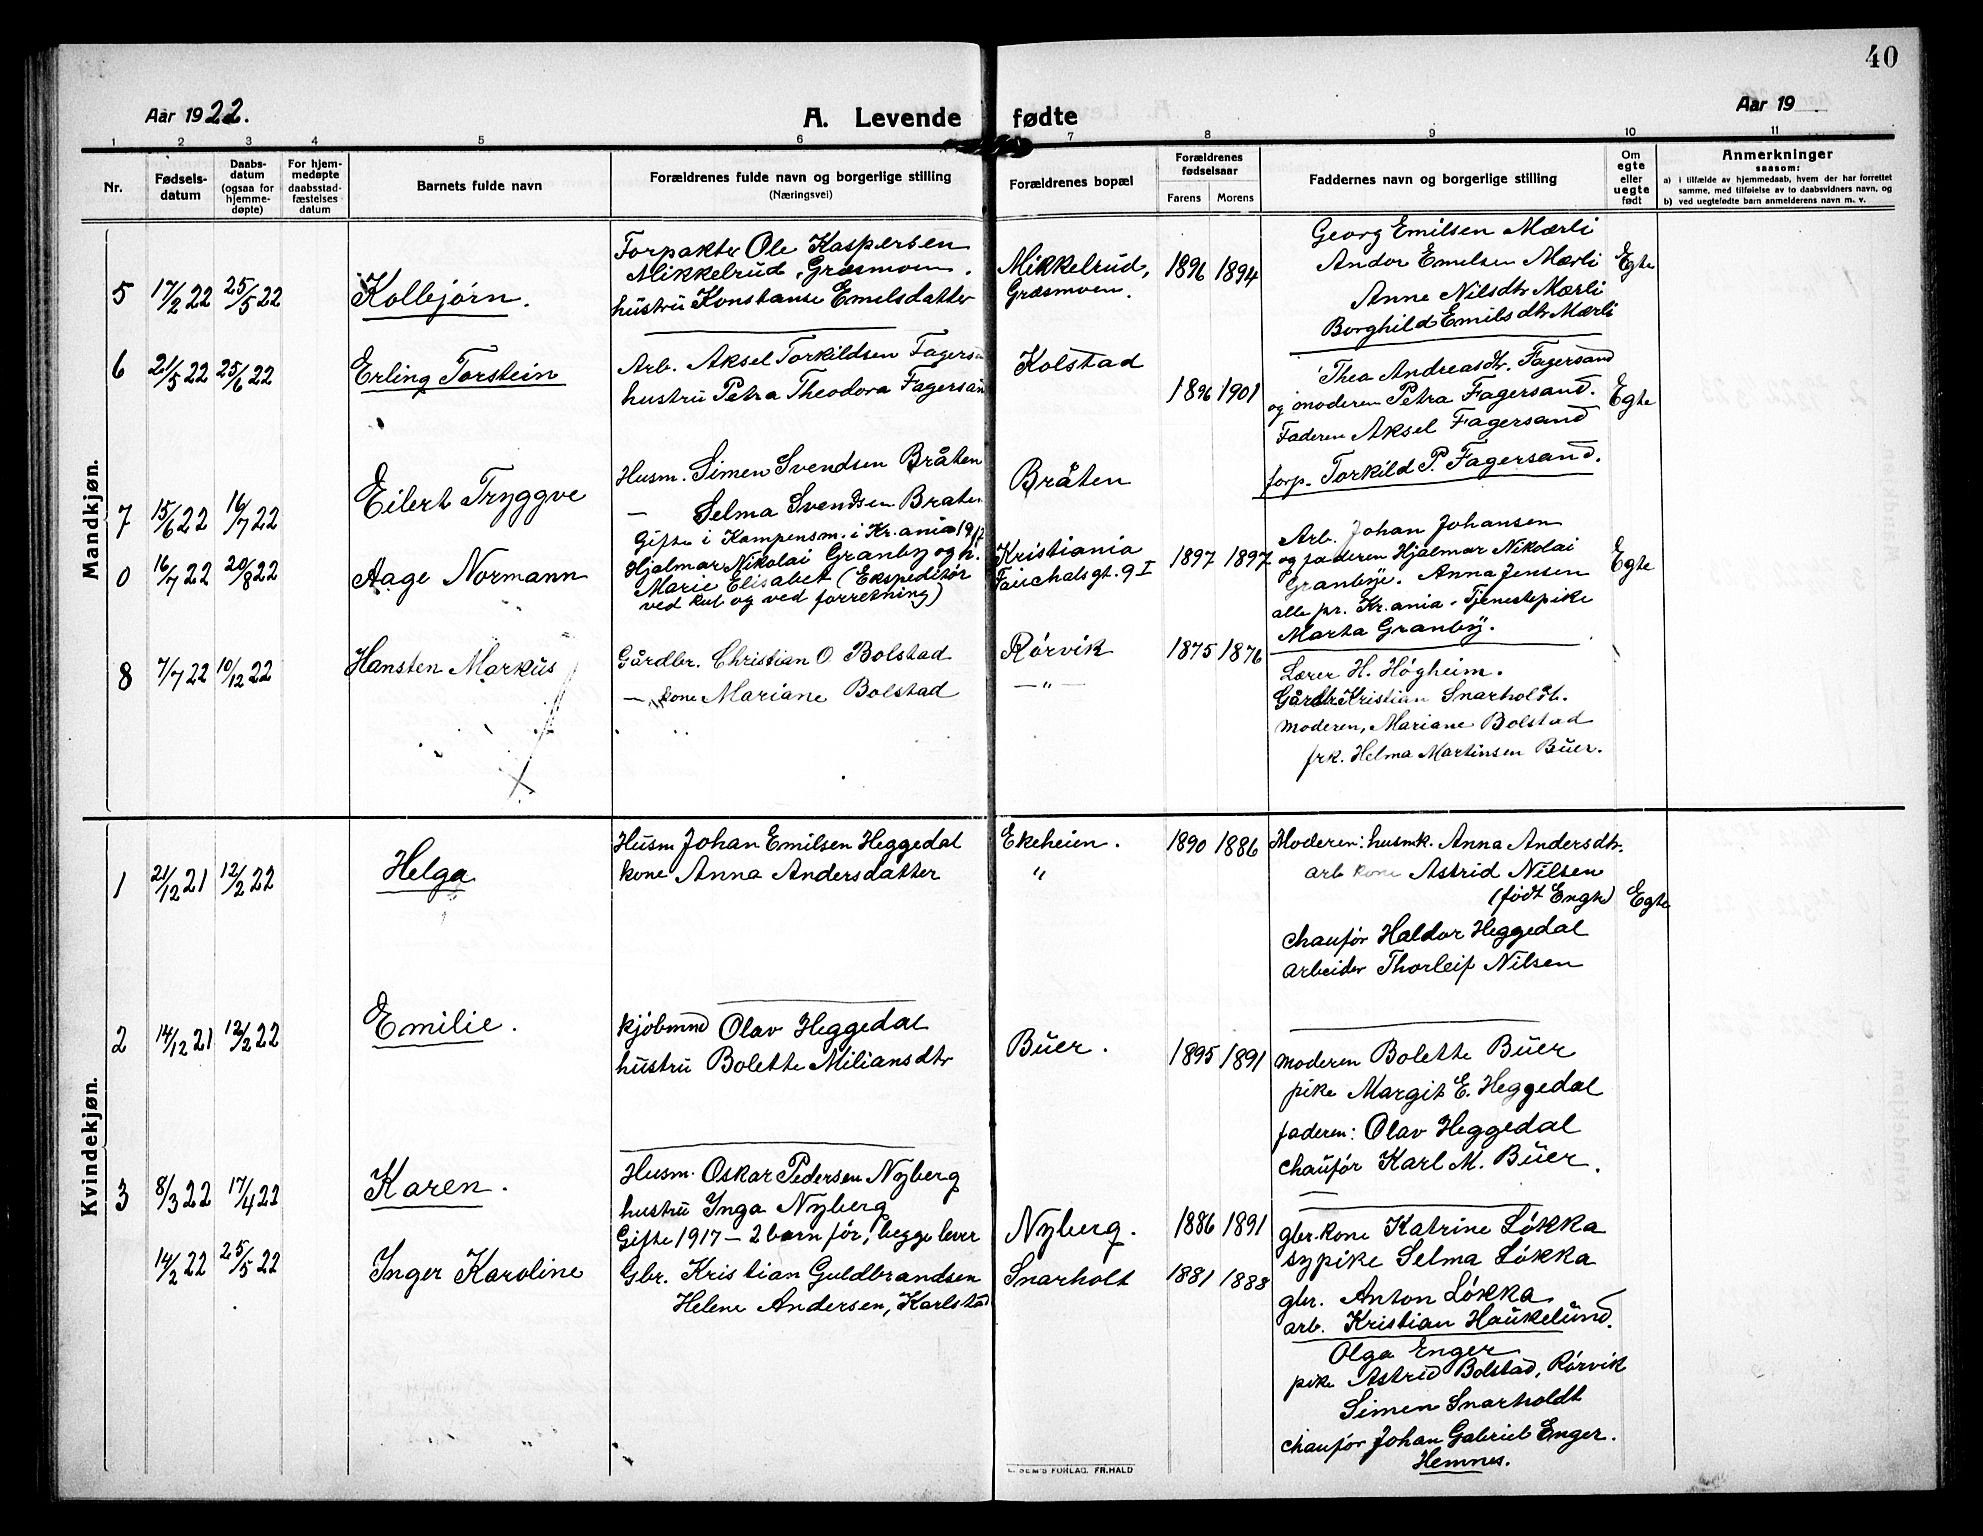 40
Aar 1922.
A. Levende fødte
Aar 19
1 2 3 4 5 6 7 8 9 10 11
Nr.
Fødsels-
datum
Daabs-
datum
(ogsaa for
hjemme-
døpte)
For hjem-
medøpte
daabsstad-
fæstelses
datum
Barnets fulde navn
Forældrenes fulde navn og borgerlige stilling
(Næringsvei)
Forældrenes bopæl
Forældrenes
fødselsaar
Farens Morens
Faddernes navn og borgerlige stilling
Om
egte
eller
uegte
født
Anmerkninger
saasom:
a) i tilfælde av hjemmedaab, hvem der har forrettet
samme, med tilføielse av to daabsvidners navn, og
b) ved uegtefødte barn anmelderens navn m. v.
Mandkjøn.
5 17/2 22 25/5 22 Kolbjørn.
Forpakter Ole Kaspersen
Mikkelrud, Græsmoen.
hustru Konstanse Emelsdatter
Mikkelrud,
Græsmoen.
1896 1894
Georg Emilsen Mærli
Andor Emelsen Mærli
Anne Nilsdtr Mærli
Borghild Emilsdtr Mærli
Egte
6 21/5 22 25/6 22 Erling Torstein
Arb. Aksel Torkildsen
hustru Petra Theodora
Kolstad
1896 1901
Thea Andreasdtr. Fagersand
og moderen Petra Fagersand.
Faderen Aksel Fagersand
forp. Torkild P. Fagersand.
Egte
7 15/6 22 16/7 22 Eilert Tryggve
Husm. Simen Svendsen Bråten
— Selma Svendsen Braten
Bråten
Gifte i Kampensm. i Kr.ania
0 16/7 22 20/8 22 Aage Normann
Hjalmar Nikolai Granby og h.
Marie Elisabet (Ekspeditør
ved kul og ved forretning)
Kristiania
Fauchalsgt. 9 I
1897 1897
Arb. Johan Johansen
og faderen Hjalmar Nikolai
Granbye. Anna Jensen
alle pr. Kr.ania. Tjenestepike
Marta Granby.
Egte
8 7/7 22 10/12 22 Hansten Markus
Gårdbr. Christian O Bolstad
— „ kone Mariane Bolstad
Rørvik
— „ —
1875 1876
Lærer H. Høgheim.
Gårdbr Kristian Snarholdt.
moderen, Mariane Bolstad
frk. Helma Martinsen Buer.
Kvindekjøn.
1 21/12 21 12/2 22 Helga
Husm Johan Emilsen Heggedal
kone Anna Andersdatter
Ekeheien.
"
1890 1886
Moderen: husmk. Anna Andersdtr.
arb kone Astrid Nilsen
(født Engh)
Egte
chaufør Haldor Heggedal
arbeider Thorleif Nilsen
2 14/12 21 12/2 22 Emilie.
kjøbmnd Olav Heggedal
hustru Bolette Miliansdtr
Buer.
1895 1891
moderen Bolette Buer
pike Margit E. Heggedal
faderen: Olav Heggedal
chaufør Karl M. Buer.
3 8/3 22 17/4 22 Karen.
Husm. Oskar Pedersen Nyberg
hustru Inga Nyberg
Gifte 1917 — 2 barn før, begge lever
Nyberg.
1886 1891
gbr. kone Katrine Løkka
sypike Selma Løkka
gbr. Anton Løkka
arb. Kristian Haukelund.
14/2 22 25/5 22 Inger Karoline
Gbr. Kristian Guldbrandsen
Helene Andersen, Karlstad
Snarholt
1881 1888
Olga Enger
pike Astrid Bolstad, Rørvik
Simen Snarholdt
chaufør Johan Gabriel Enger.
Hemnes.
SEM'S FORLAG. FR.HALD